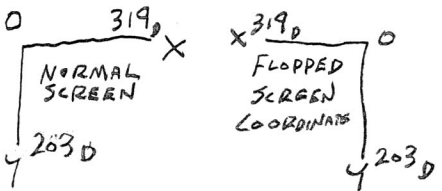 0 319D X
NORMAL
SCREEN
Y 203D
X 319D 0
FLOPPED
SCREEN
COORDINATES
Y 203D